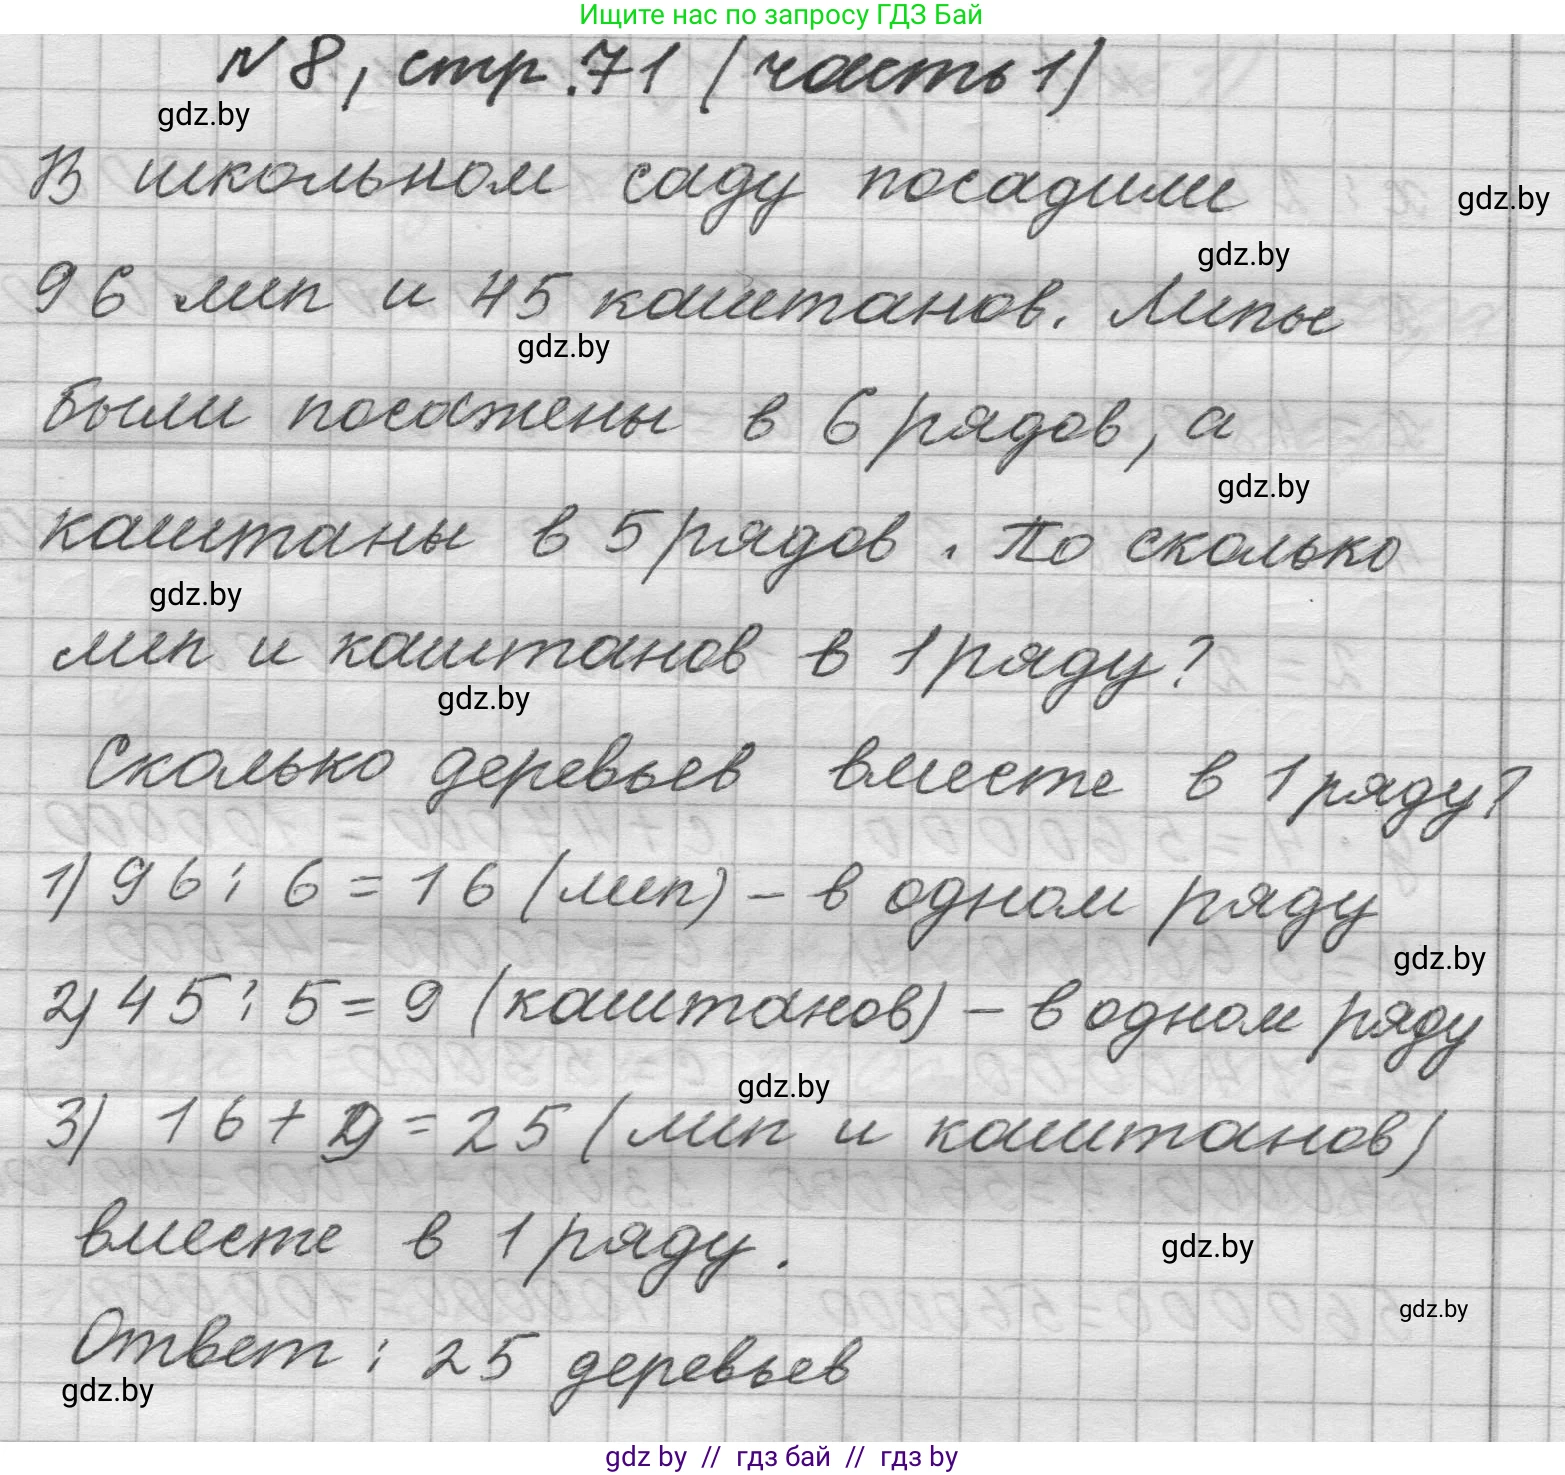 Ищите нас по запросу ГДЗ Бай
№8, стр. 71 (часть 1)
gdz.by
В школьном саду посадили
gdz.by
gdz.by
96 лип и 45 каштанов. Липы
gdz.by
были посажены в 6 рядов, а
gdz.by
каштаны в 5 рядов. По сколько
gdz.by
лип и каштанов в 1 ряду?
gdz.by
Сколько деревьев вместе в 1 ряду?
1) 96 : 6 = 16 (лип) – в одном ряду
gdz.by
2) 45 : 5 = 9 (каштанов) – в одном ряду
gdz.by
3) 16 + 9 = 25 (лип и каштанов)
вместе в 1 ряду.
gdz.by
gdz.by
Ответ : 25 деревьев
gdz.by
gdz by // гдз бай // гдз by